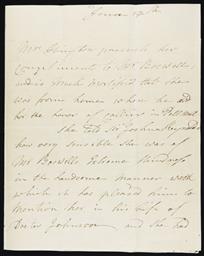 Mrs Abington presents her
Compliments to Mr Boswell
and is Much Mortified that she
was from home when he did
her the honor of calling in Pall Mall
She told Sir Joshua Reynolds
how very sensible she was of
Mr Boswells Extreme Kindness
in the handsome manner with
which it has pleased him to
Mention her in his life of
Doctor Johnson and she had